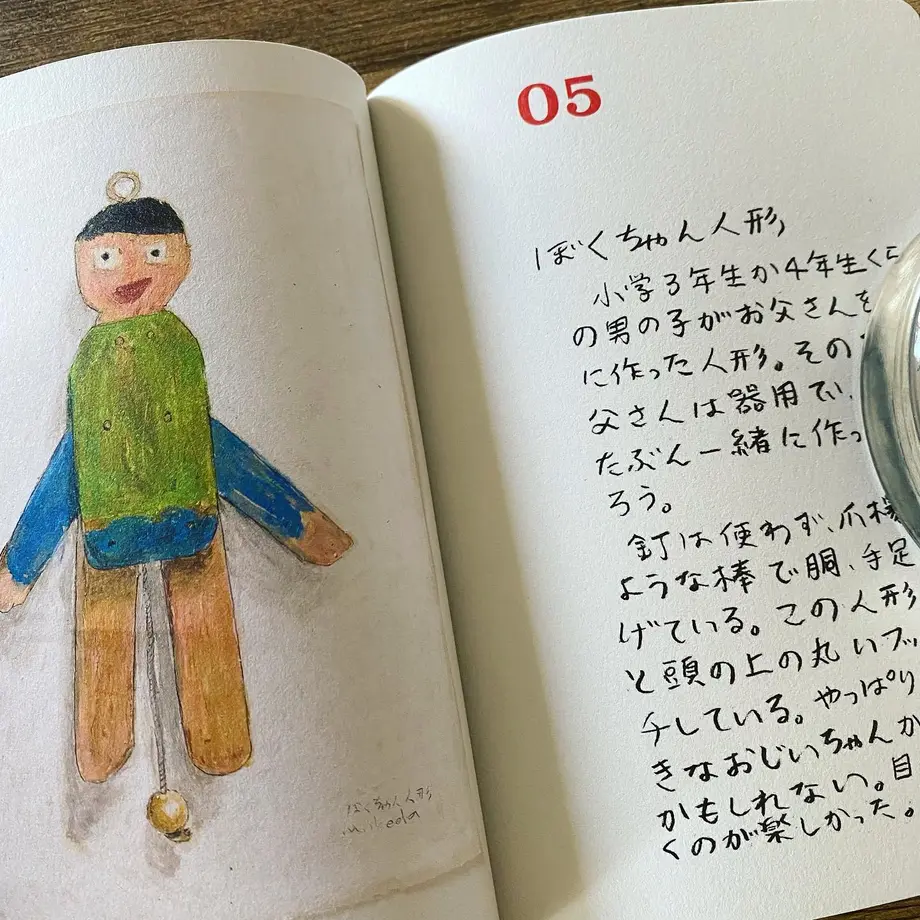 ぼくちゃん人形
M. Ikeda
05
ぼくちゃん人形
小学3年生か4年生く
の男の子がお父さんを
に作った人形。その
父さんは器用で、
たぶん一緒に作っ
ろう。
釘は使わず、爪楊
ような棒で胴、手足
げている。この人形
と頭の上の丸いフッ
チしている。やっぱり
きなおじいちゃんか
かもしれない。目
くのが楽しかった。